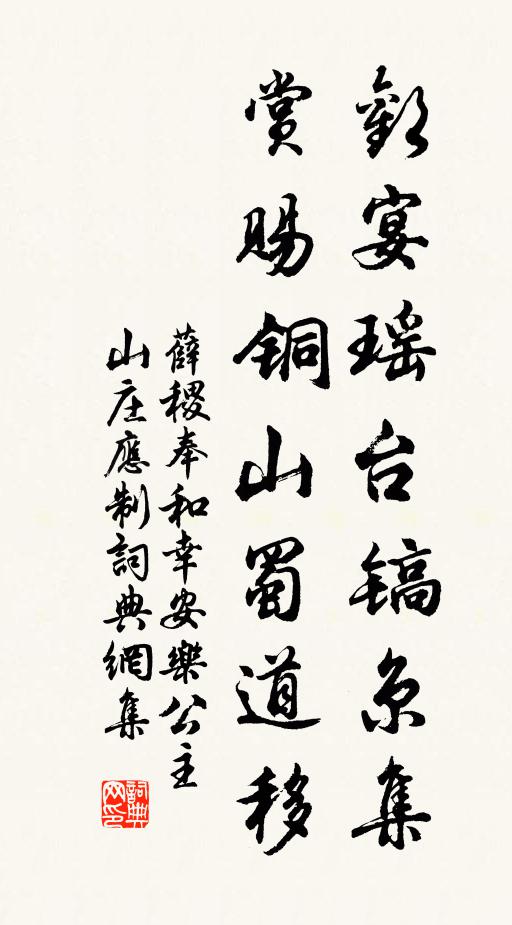 歡宴瑶台鎬京集
賞賜銅山蜀道移
薛稷奉和幸安樂公主
山庄應制詞典網集
詞典
网印